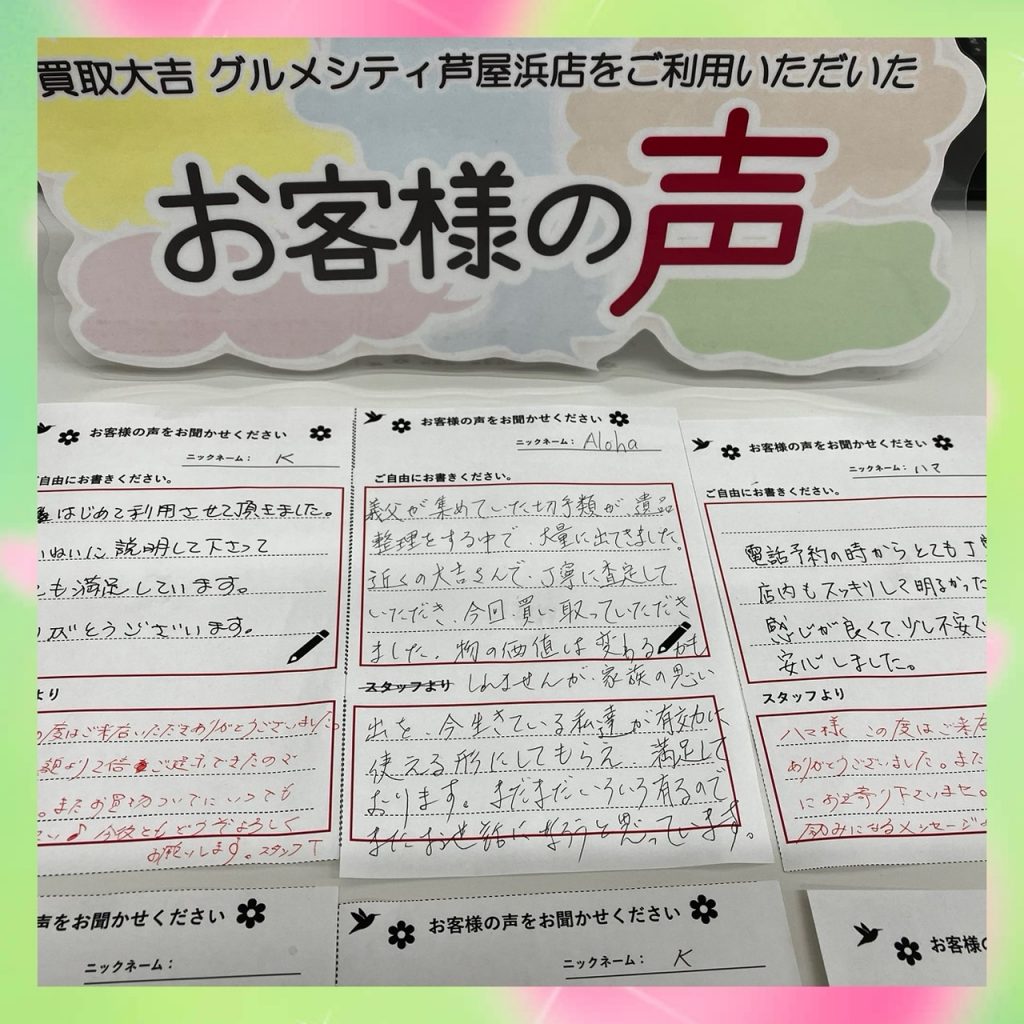 買取大吉 グルメシティ芦屋浜店をご利用いただいた
お客様の声
お客様の声をお聞かせください
ニックネーム： K
ご自由にお書きください。
はじめて利用させて頂きました。
いねいに説明して下さって
も満足しています。
りがとうございます。
より
度はご来店いただきありがとうございました。
額より2倍
ご提示できたので
。またお買物ついでにいつでも
さい♪今後ともどうぞよろしく
お願いします。スタッフT
お客様の声をお聞かせください
ニックネーム： Aloha
ご自由にお書きください。
義父が集めていた切手類が、遺品
整理をする中で、大量に出てきました。
近くの大吉さんで、丁寧に査定して
いただき、今回、買い取っていただき
ました。物の価値は変わるかも
スタッフより しれませんが、家族の思い
出を、今生きている私達が有効に
使える形にしてもらえ、満足して
おります。まだまだいろいろ有るので
またお世話になろうと思っています。
お客様の声をお聞かせください
ニックネーム： ハマ
ご自由にお書きください。
電話予約の時からとても丁
店内もスッキリして明るかった
感じが良くて、少し不安で
安心しました。
スタッフより
ハマ様 この度はご来店
ありがとうございました。また
にお立寄り下さいませ。
励みになるメッセージ
声をお聞かせください
ニックネーム：
お客様の声をお聞かせください
ニックネーム： K
お客様の